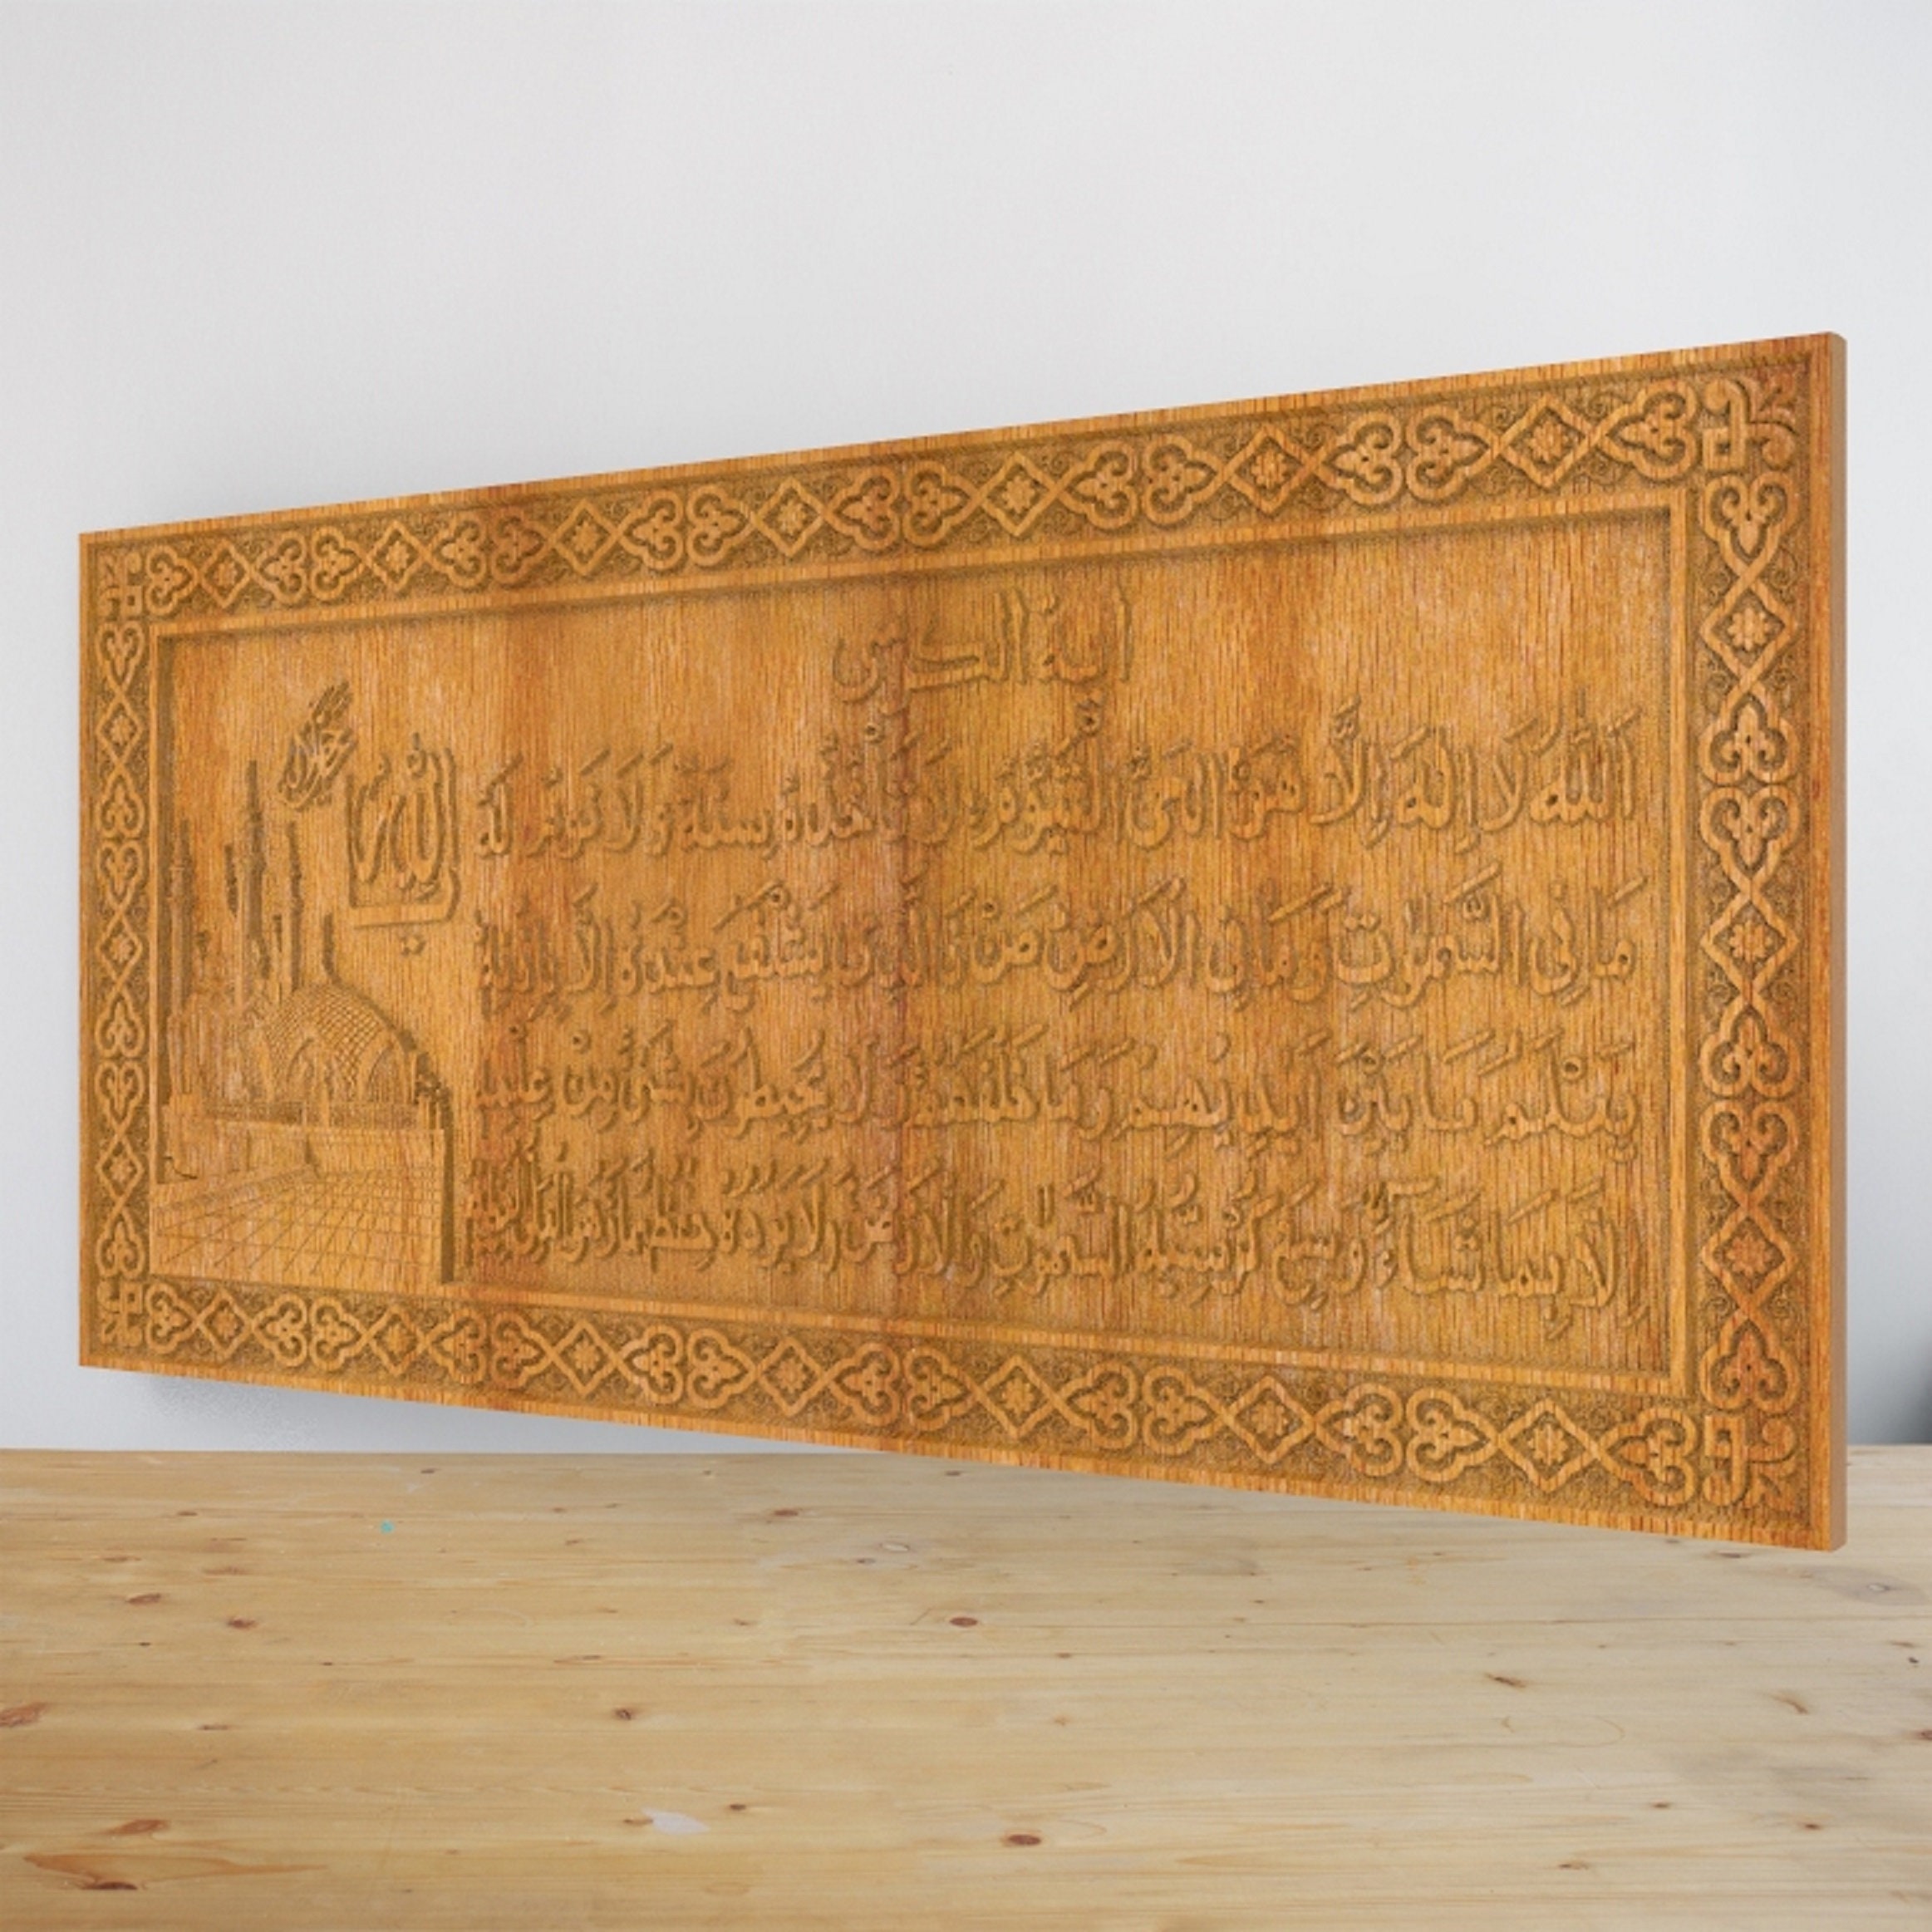 اية الكرسي
اَللّٰهُ لَا اِلٰهَ اِلَّا هُوَ الْحَیُّ الْقَيُّوْمُ لَا تَأْخُذُهٗ سِنَةٌ وَّلَا نَوْمٌ لَهٗ
مَا فِی السَّمٰوٰتِ وَمَا فِی الْاَرْضِ مَنْ ذَا الَّذِی يَشْفَعُ عِنْدَهٗ اِلَّا بِاِذْنِهٖ
يَعْلَمُ مَا بَيْنَ اَيْدِيْهِمْ وَمَا خَلْفَهُمْ وَلَا يُحِيْطُوْنَ بِشَیْءٍ مِّنْ عِلْمِهٖ
اِلَّا بِمَا شَآءَ وَسِعَ كُرْسِيُّهُ السَّمٰوٰتِ وَالْاَرْضَ وَلَا يَـُٔوْدُهٗ حِفْظُهُمَا وَهُوَ الْعَلِیُّ الْعَظِيْمُ
يا الله